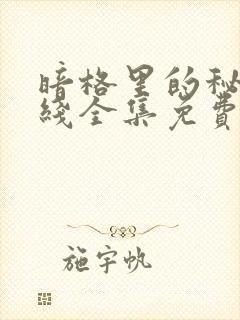 暗格里的秘
线全集免费
施宇帆